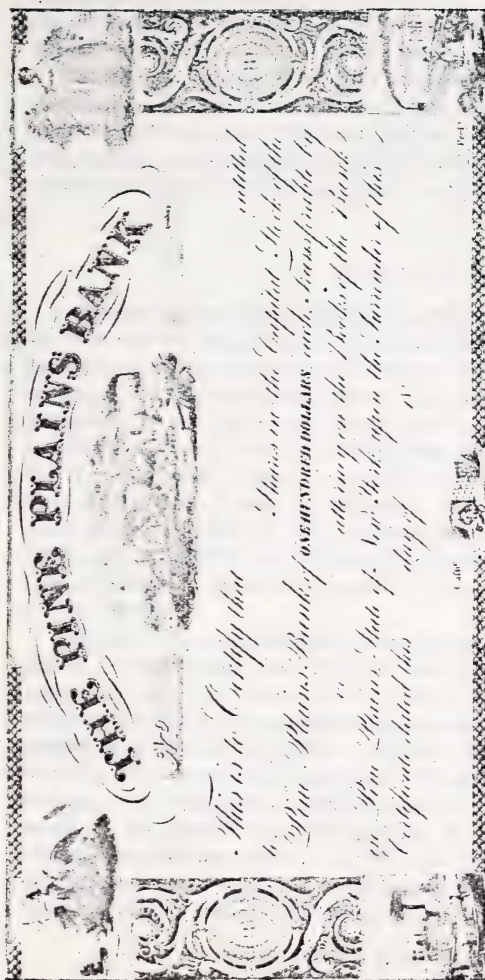 THE PINE PLAINS BANK
This is to Certify that entitled
to Shares in the Capital Stock of the
Pine Plains Bank, of ONE HUNDRED DOLLARS each, transferable by
or attorney on the Books of the Bank
at Pine Plains, State of New York, upon the Surrender of this
Certificate dated this day of 18
Cash.r
Pres.t